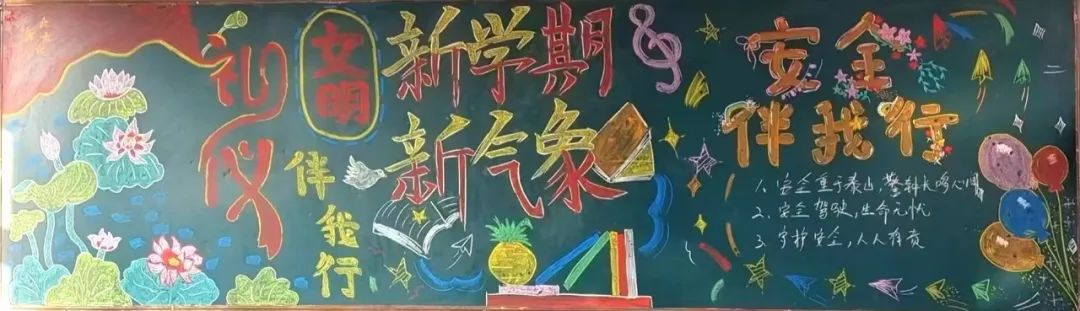 礼仪
文明
伴我行
新学期
新气象
安全
伴我行
1、安全重于泰山,警钟长鸣心间
2、安全驾驶,生命无忧
3、守护安全,人人有责